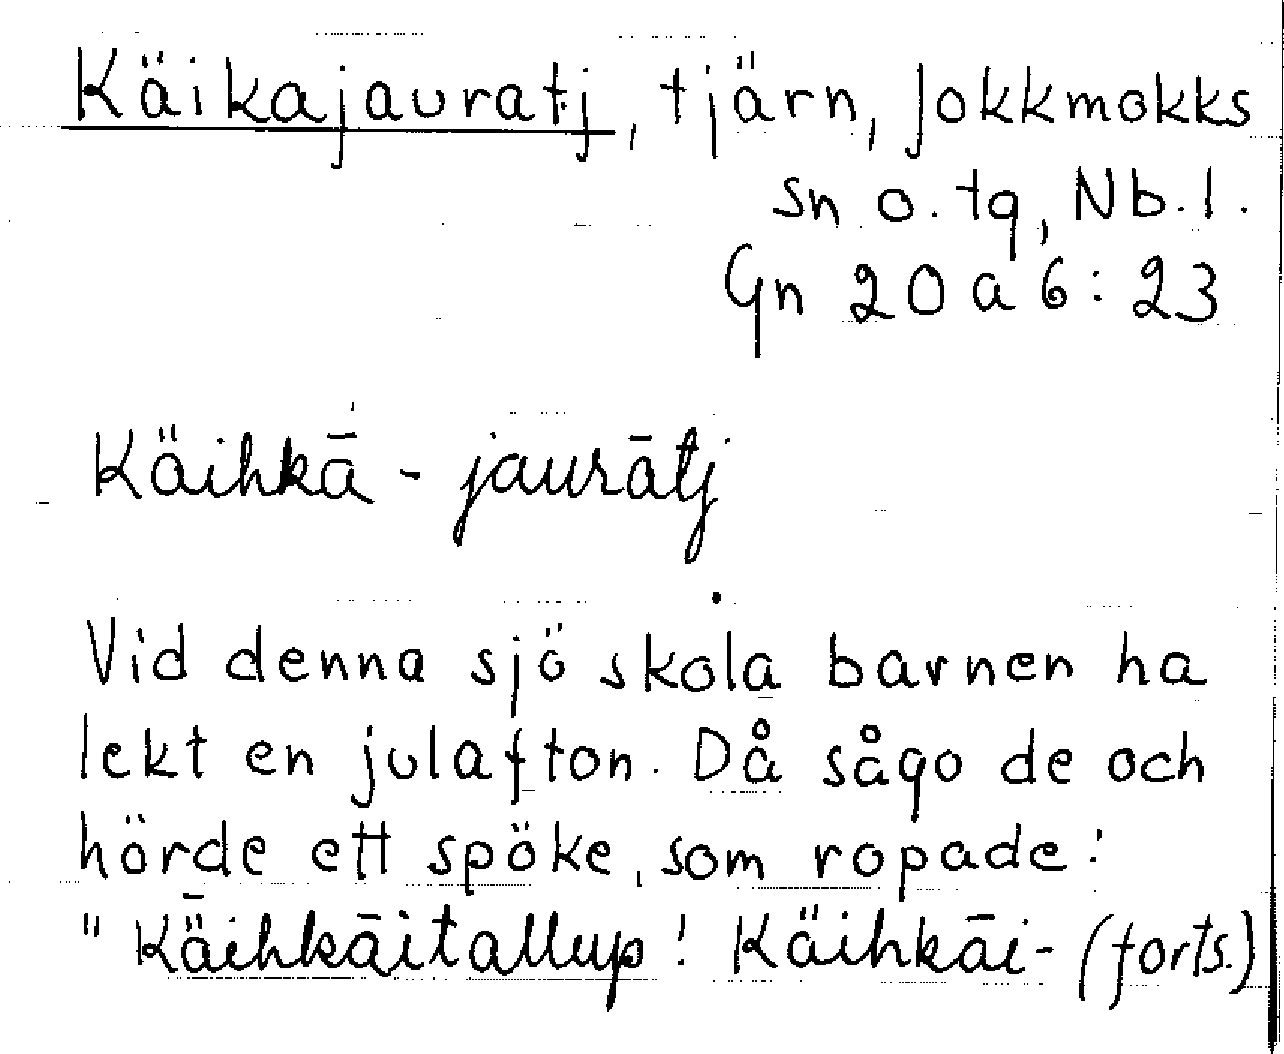 Käikajauratj, tjärn, Jokkmokks
sn o. tg, Nb. l.
Gn 20 a 6:23
Käihkā-jaurātj
Vid denna sjö skola barnen ha
lekt en julafton. Då sågo de och
hörde ett spöke, som ropade:
"Käihkāitallup! Käihkāi- (forts.)